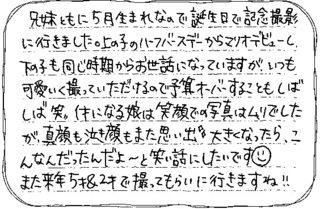 兄妹ともに5月生まれなので誕生日で記念撮影
に行きました。上の子のハーフバースデーからマリオデビューし、
下の子も同じ時期からお世話になっていますが、いつも
可愛いく撮っていただけるので予算オーバーすることもしば
しば笑。1才になる娘は笑顔での写真はムリでした
が、真顔も泣き顔もまた思い出♡大きくなったら、こ
んなんだったんだよ〜と笑い話にしたいです☺
また来年5才&2才で撮ってもらいに行きますね!!